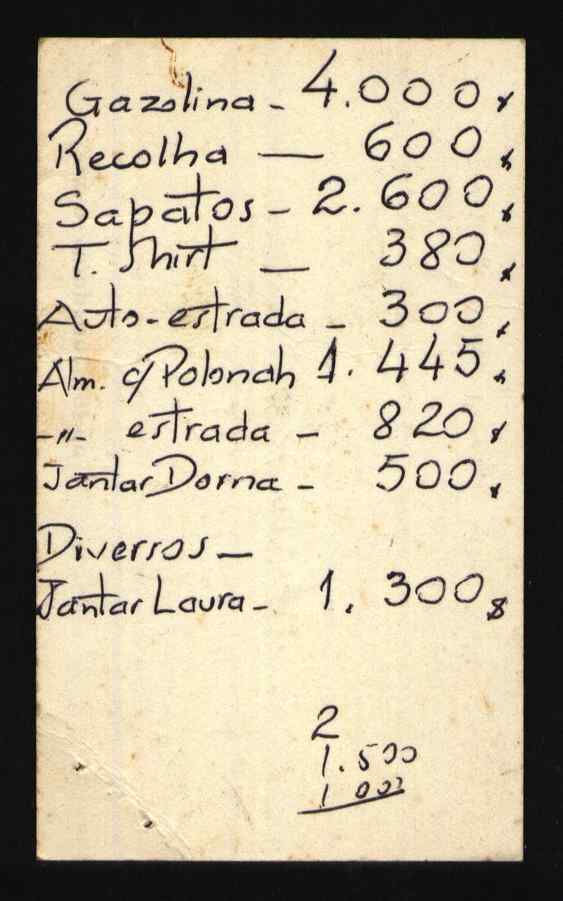 Gazolina - 4.000$
Recolha — 600$
Sapatos - 2.600$
T. Shirt — 380$
Auto-estrada - 300$
Alm. c/ Polonah 1.445$
-"- estrada - 820$
Jantar Dorna - 500$
Diversos —
Jantar Laura - 1.300$
2
1.500
1 000